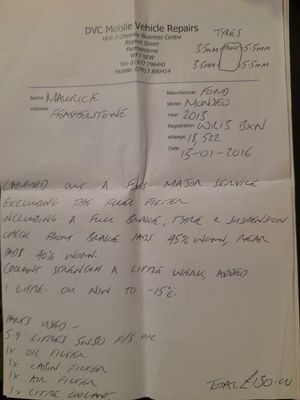 DVC Mobile Vehicle Repairs
Unit 3 Chesney Business Centre
Regent Street
Featherstone
WF7 5EW
Tel: 07977 796441
Mobile: 07917 890414
TYRES
3.5mm FRONT 5.5mm
3.5mm 5.5mm
Name: MAURICE
Address: FEATHERSTONE
Manufacturer: FORD
Model: MONDEO
Year: 2013
Registration: WR13 BXN
Mileage: 18,522
Date: 13-01-2016
CARRIED OUT A FULL MAJOR SERVICE
EXCLUDING THE FUEL FILTER
INCLUDING A FULL BRAKE, TYRE & SUSPENSION
CHECK FRONT BRAKE PADS 45% WORN, REAR
PADS 40% WORN.
COOLANT STRENGTH A LITTLE WEAK, ADDED
1 LITRE. OK NOW TO -15°C.
PARTS USED:-
5.9 LITRES 5W30 F/S OIL
1X OIL FILTER
1X CABIN FILTER
1X AIR FILTER
1X LITRE COOLANT
TOTAL £130.00